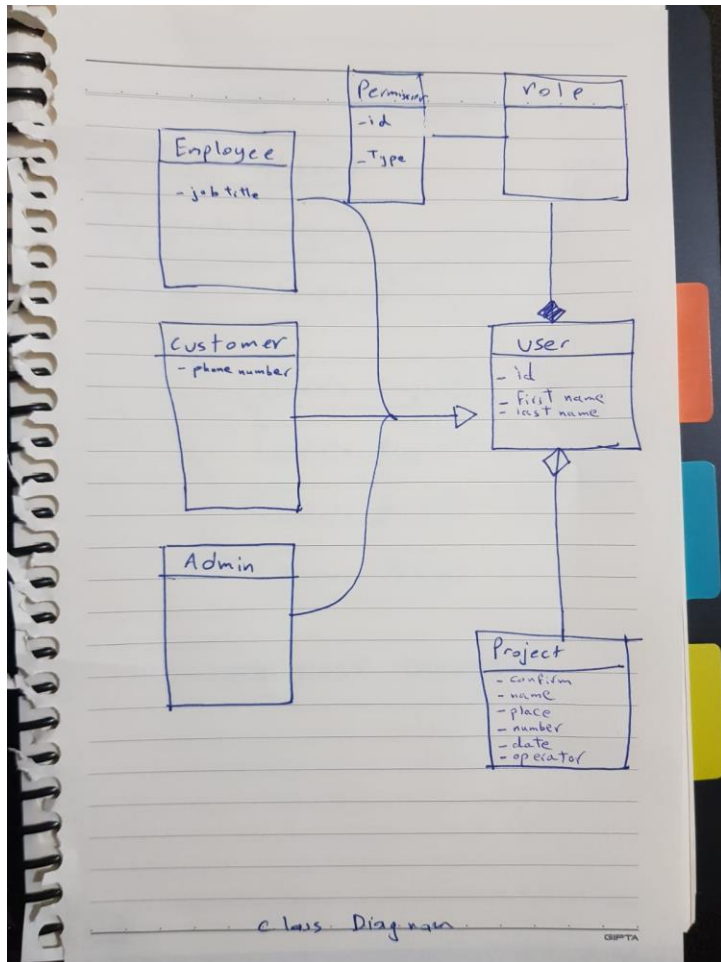 Permission
- id
- Type
role
Employee
- job title
Customer
- phone number
User
- id
- first name
- last name
Admin
Project
- confirm
- name
- place
- number
- date
- operator
class Diagram
GIPTA